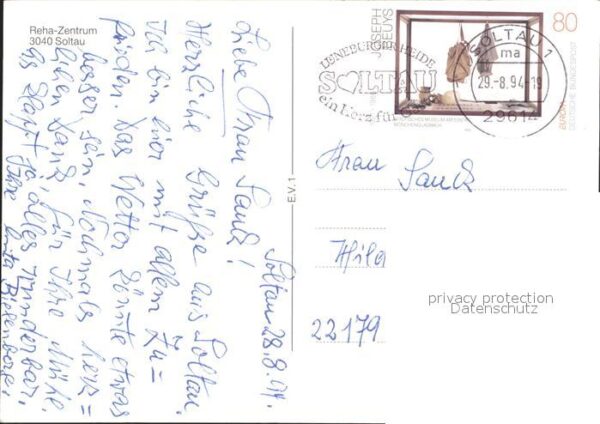 Reha-Zentrum
3040 Soltau
Soltau 28.8.94.
Liebe Frau Sauck!
Herzliche Grüße aus Soltau.
Ich bin hier mit allem Zu=
frieden. Das Wetter könnte etwas
besser sein. Nochmals herz=
lichen Dank, für Ihre Mühe.
es klappt ja alles wunderbar.
Ihre
E.V. 1
LÜNEBURGER HEIDE
SOLTAU
ein Herz für
SOLTAU 1
ma
29.-8.94-19
29614
JOSEPH
BEUYS
80
EUROPA
DEUTSCHE BUNDESPOST
Frau Sauck
Hila
22179
privacy protection
Datenschutz